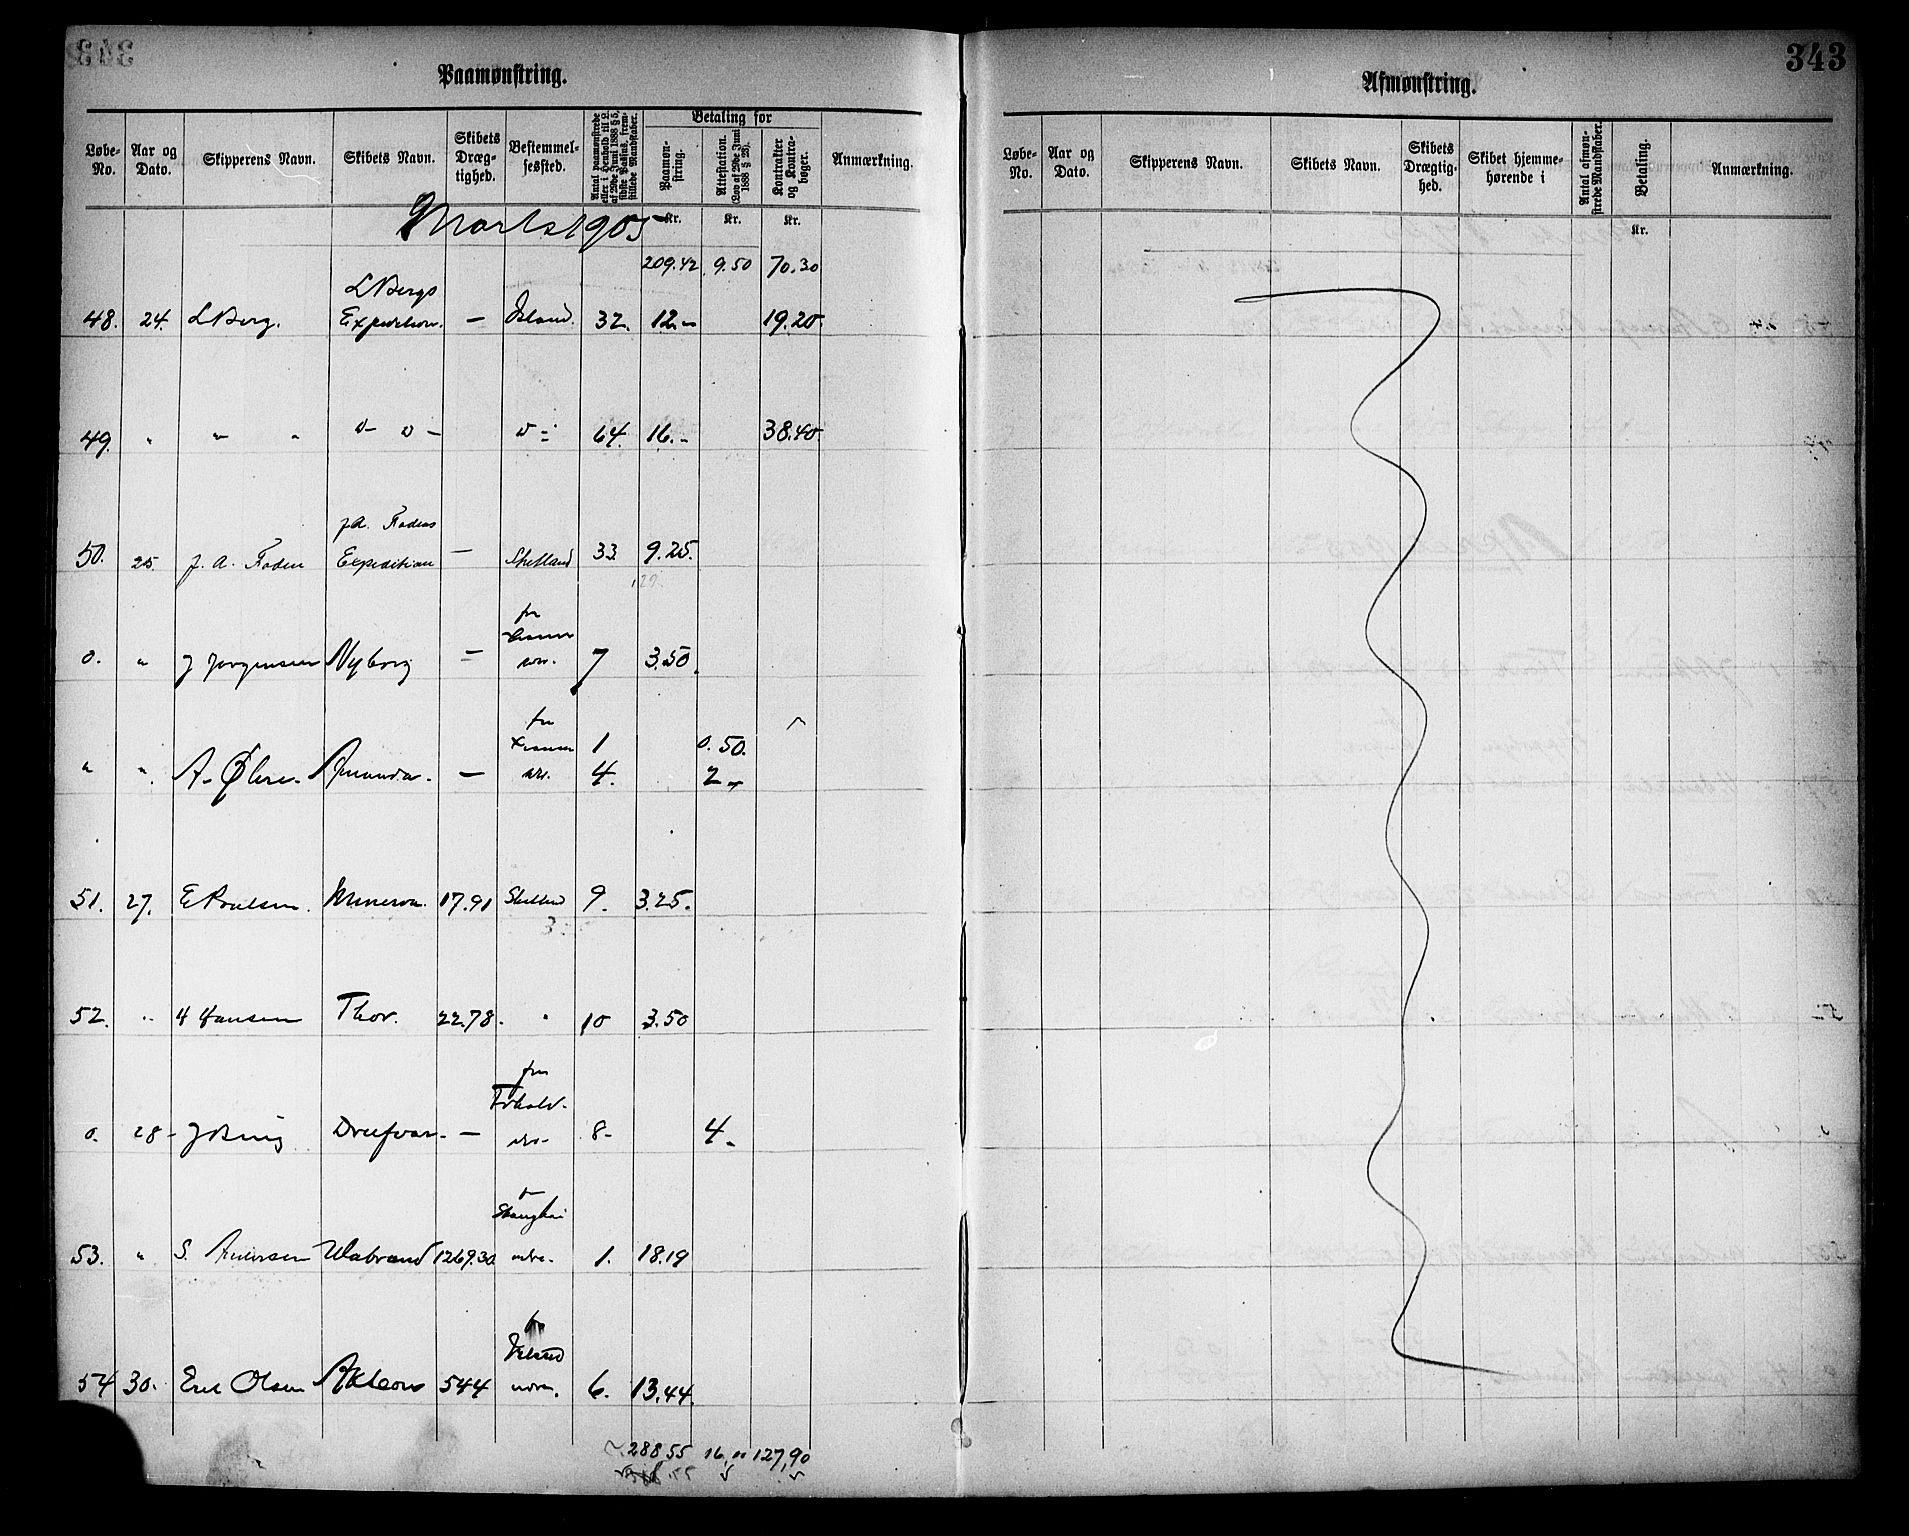 343
Paamønstring.
Afmønstring.
Løbe-No. Aar og Dato. Skipperens Navn. Skibets Navn. Skibets Dræg-tighed. Bestemmel-sessted. Antal paamønstrede eller i Henhold til L. af 29de Juni 1888 § 5, sidste Passus, frem-stillede Mandskaber. Betaling for Paamøn-string. Attestation. (Lov af 29de Juni 1888 § 28). Kontrakter og Kontra-bøger. Anmærkning.
Løbe-No. Aar og Dato. Skipperens Navn. Skibets Navn. Skibets Drægtig-hed. Skibet hjemme-hørende i Antal afmøn-strede Mandskaber. Betaling. Anmærkning.
Marts 1905 Kr. Kr. Kr.
Kr.
209.42 9.50 70.30
L Bergs
48. 24. L Berg. Expedition. — Island. 32. 12.- 19.20.
49. " " " v- v- v- 64. 16.- 38.40.
J.A. Fodens
50. 25. J. A. Foden Expedition — Shetland 33. 9.25.
fra
0. " J Jørgensen Nyborg — 7 3.50.
fra
1 0.50.
" " A. Amanda. — 4. 2-
51. 27. E Poulsen. Minerva. 17.91 Shetland 9. 3.25.
52. " H Hansen Thor. 22.78. " 10 3.50
fra
0. 28- — 8- 4-
Shanghai
53. " S. 1269.30 1. 18.19
54 30. Erik Olsen 544 6. 13.44.
288,55 16." 127,90